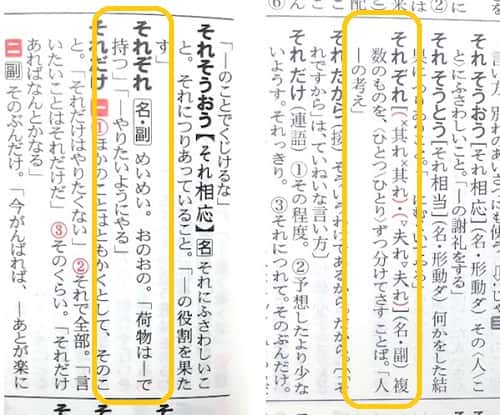 「―のことでくじけるな」
それそうおう【それ相応】名 それにふさわしいこ
と。それにつりあっていること。「―の役割を果た
す」
それぞれ 名・副 めいめい。おのおの。「荷物は―で
持つ」「―やりたいようにやる」
それだけ 一 ①ほかのことはともかくとして、そのこ
と。「それだけはやりたくない」 ②それで全部。「言
いたいことはそれだけだ」 ③そのくらい。「それだけ
あればなんとかなる」
二 副 そのぶんだけ。「今がんばれば、―あとが楽に
それ そうおう
とにふさわしいこと。「―の謝礼をする」
それ そうとう[それ相当](名・形動ダ) 何かをした結
それ ぞれ[(:其れ×其れ)・(:夫れ、夫れ)](名・副) 複
数のものを、〈ひとつ/ひとり〉ずつ分けてさす ことば。「人
―の考え」
それ だから(接)
れですから」は、ていねいな言い方]
それ だけ(連語) ①その程度。 ②予想したより少な
いようす。それっきり。 ③それにつれて。そのぶんだけ。